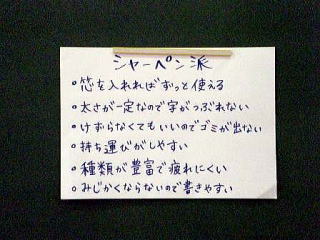 シャーペン派
・芯を入れればずっと使える
・太さが一定なので字がつぶれない
・けずらなくてもいいのでゴミが出ない
・持ち運びがしやすい
・種類が豊富で疲れにくい
・みじかくならないので書きやすい